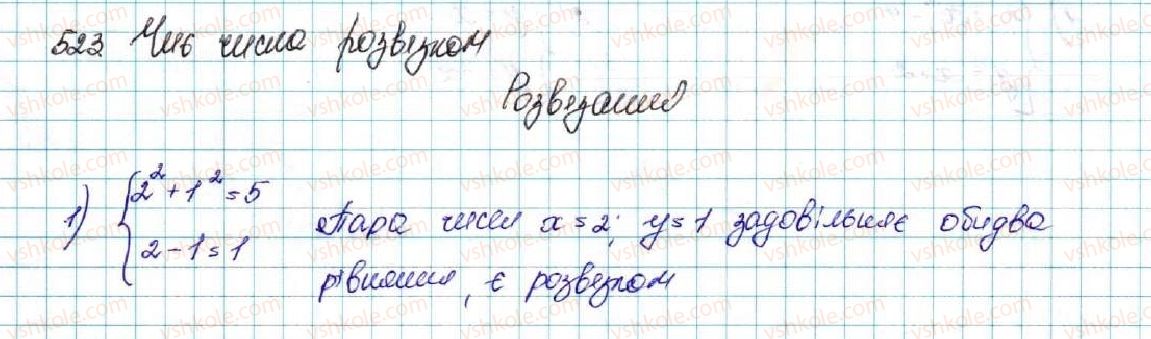 523. Чи є числа розвезком
Розвезання
1) { 2² + 1² = 5
2 - 1 = 1
Пара чисел x = 2; y = 1 задовільняє обидва
рівняння, є розвезком